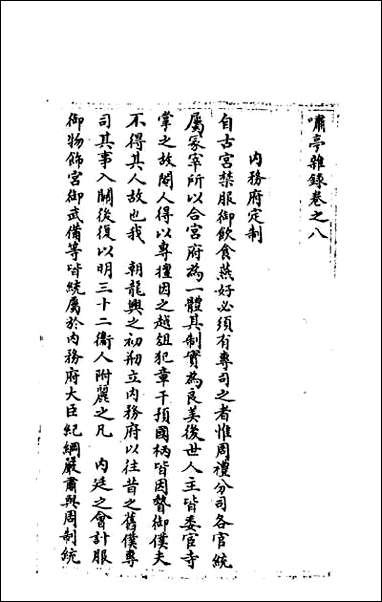 嘯亭雜録卷之八
内務府定制
自古宮禁服御飲食燕好必須有專司之者惟周禮分司各官統
屬冢宰所以合宮府為一體其制實為良美後世人主皆委宦寺
掌之故閹人得以專擅因之越俎犯章干預國柄皆因瞽御僕夫
不得其人故也我 朝龍興之初剏立内務府以往昔之舊僕專
司其事入關後復以明三十二衞人附麗之凡 内廷之會計服
御物飾宮御武備等皆統屬於内務府大臣紀綱嚴肅與周制統